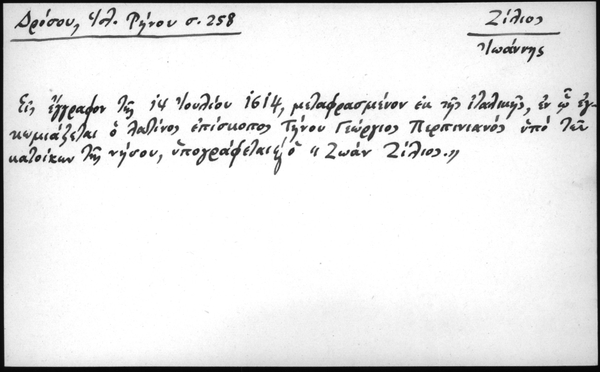 Δρόσου, Ἱστ. Τήνου σ. 258
Ζίλιος
Ἰωάννης
Εἰς ἔγγραφον τῆς 14 Ἰουλίου 1614, μεταφρασμένον ἐκ τῆς ἰταλικῆς, ἐν ᾧ ἐγ-
κωμιάζεται ὁ λατῖνος ἐπίσκοπος Τήνου Γεώργιος Περπινιανός ὑπό τῶν
κατοίκων τῆς νήσου, ὑπογράφεται ὁ « Ζωάν Ζίλιος.»